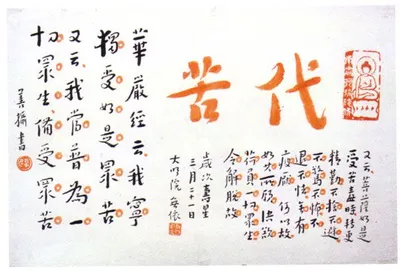 代苦
又云菩薩如是
受苦毒時轉更
精勤不捨不避
不驚不怖不
退不怯無有
疲厭何以故
如其所願決欲
荷負一切眾生
令解脫故
歲次壽星
三月二十一日
大明院
華嚴經云我寧
獨受如是眾苦
又云我當普為一
切眾生備受眾苦
書